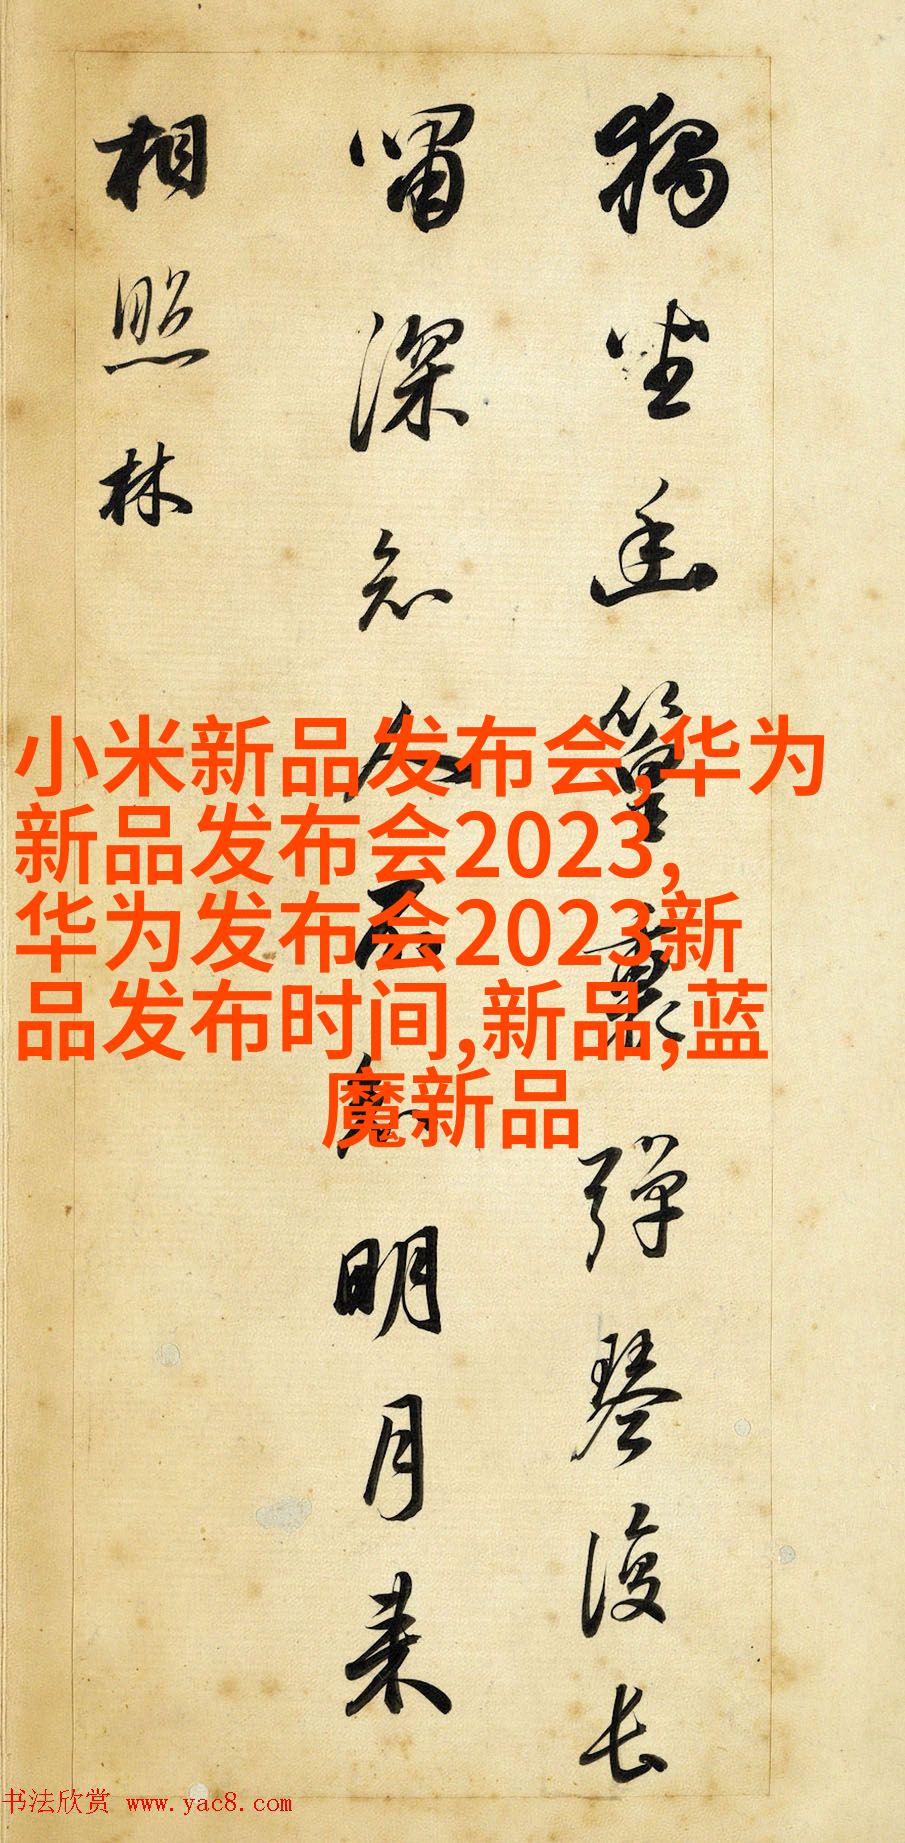 獨坐幽篁裏彈琴復長
嘯深知人不知明月来
相照林
小米新品发布会,华为
新品发布会2023,
华为发布会2023新
品发布时间,新品,蓝
魔新品
书法欣赏 www.yac8.com